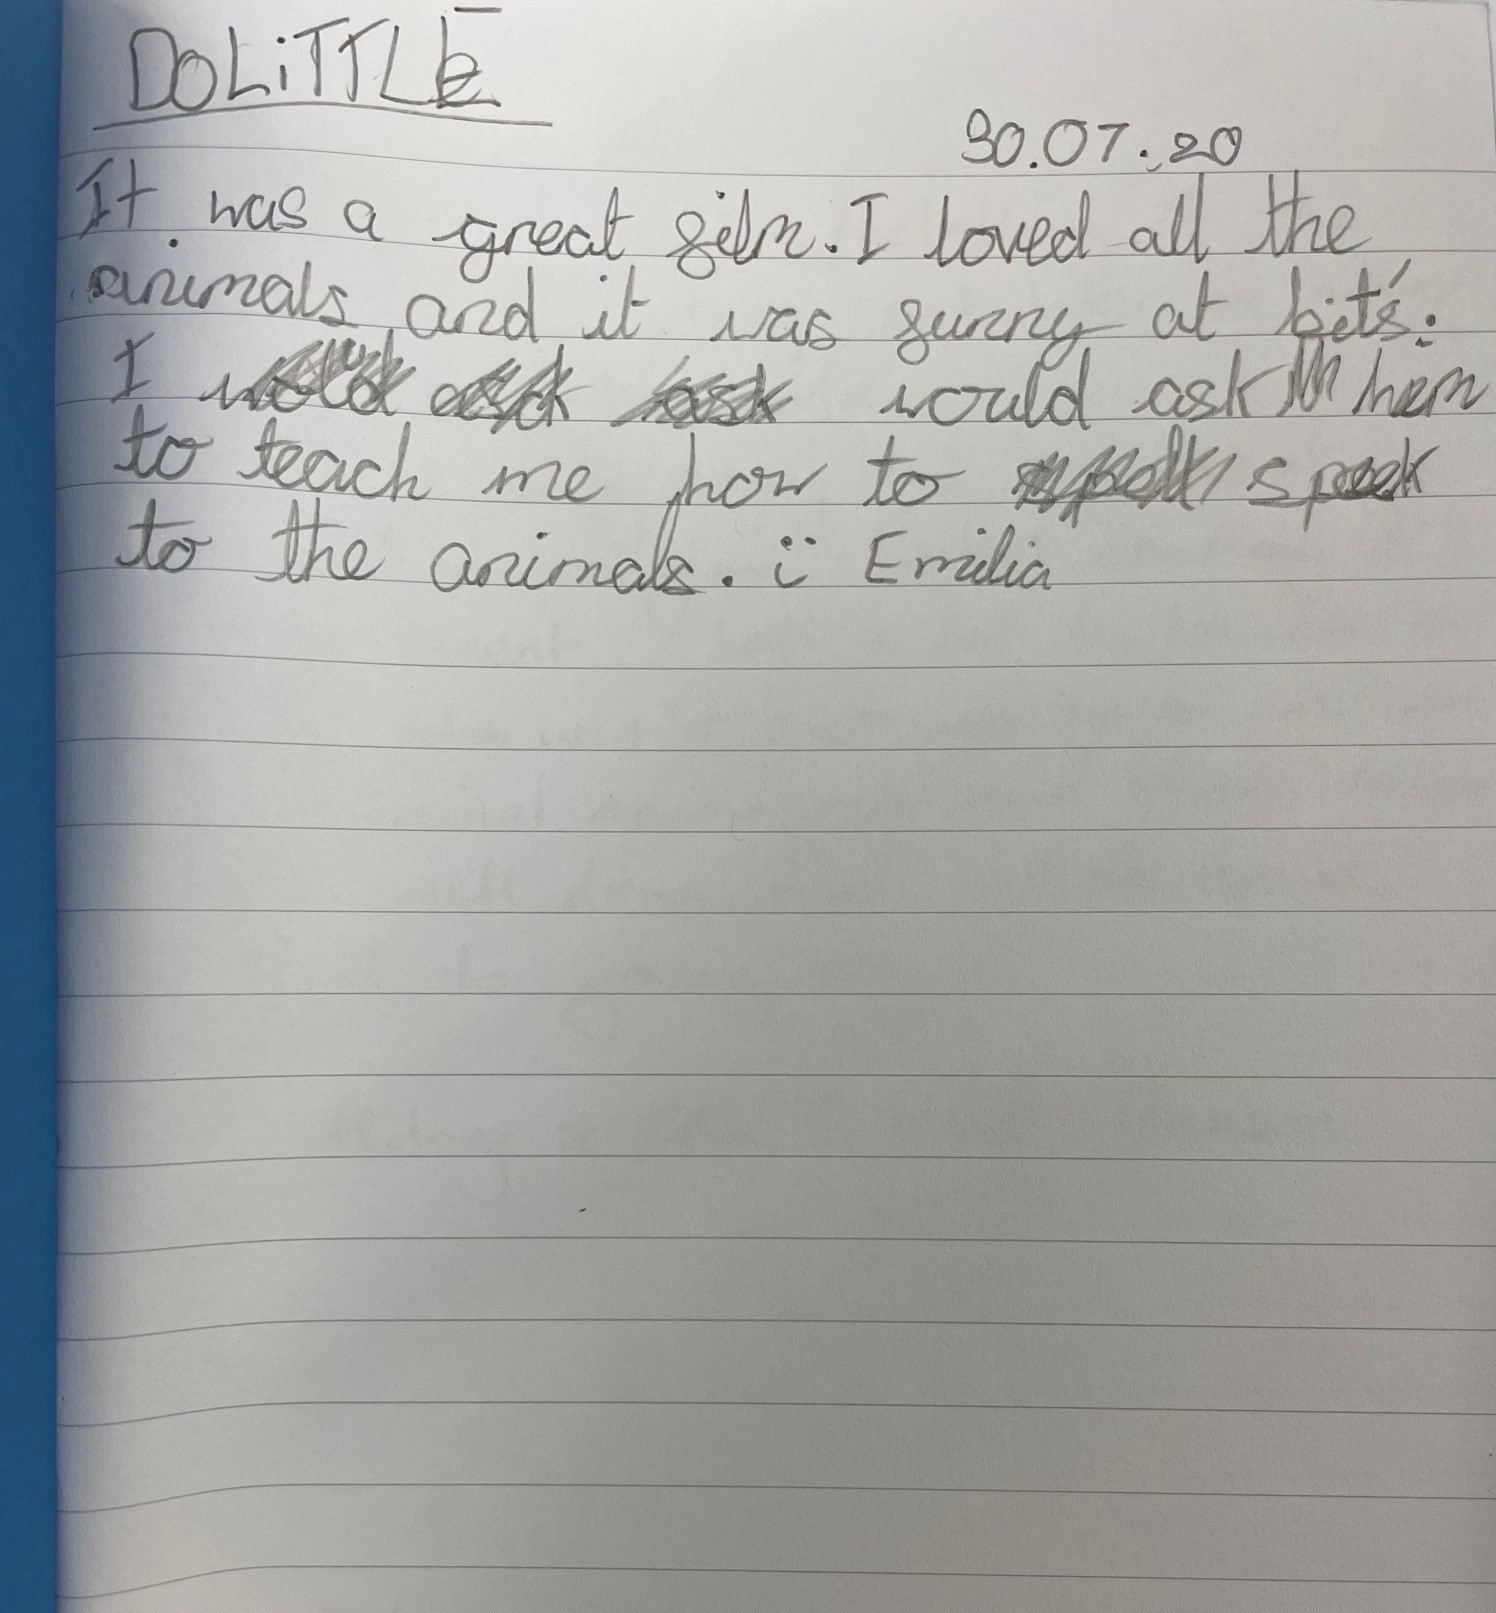 DOLiTTLE
30.07.20
It was a great film. I loved all the
animals and it was funny at bits.
I would ask him
to teach me how to speek
to the animals. Emilia